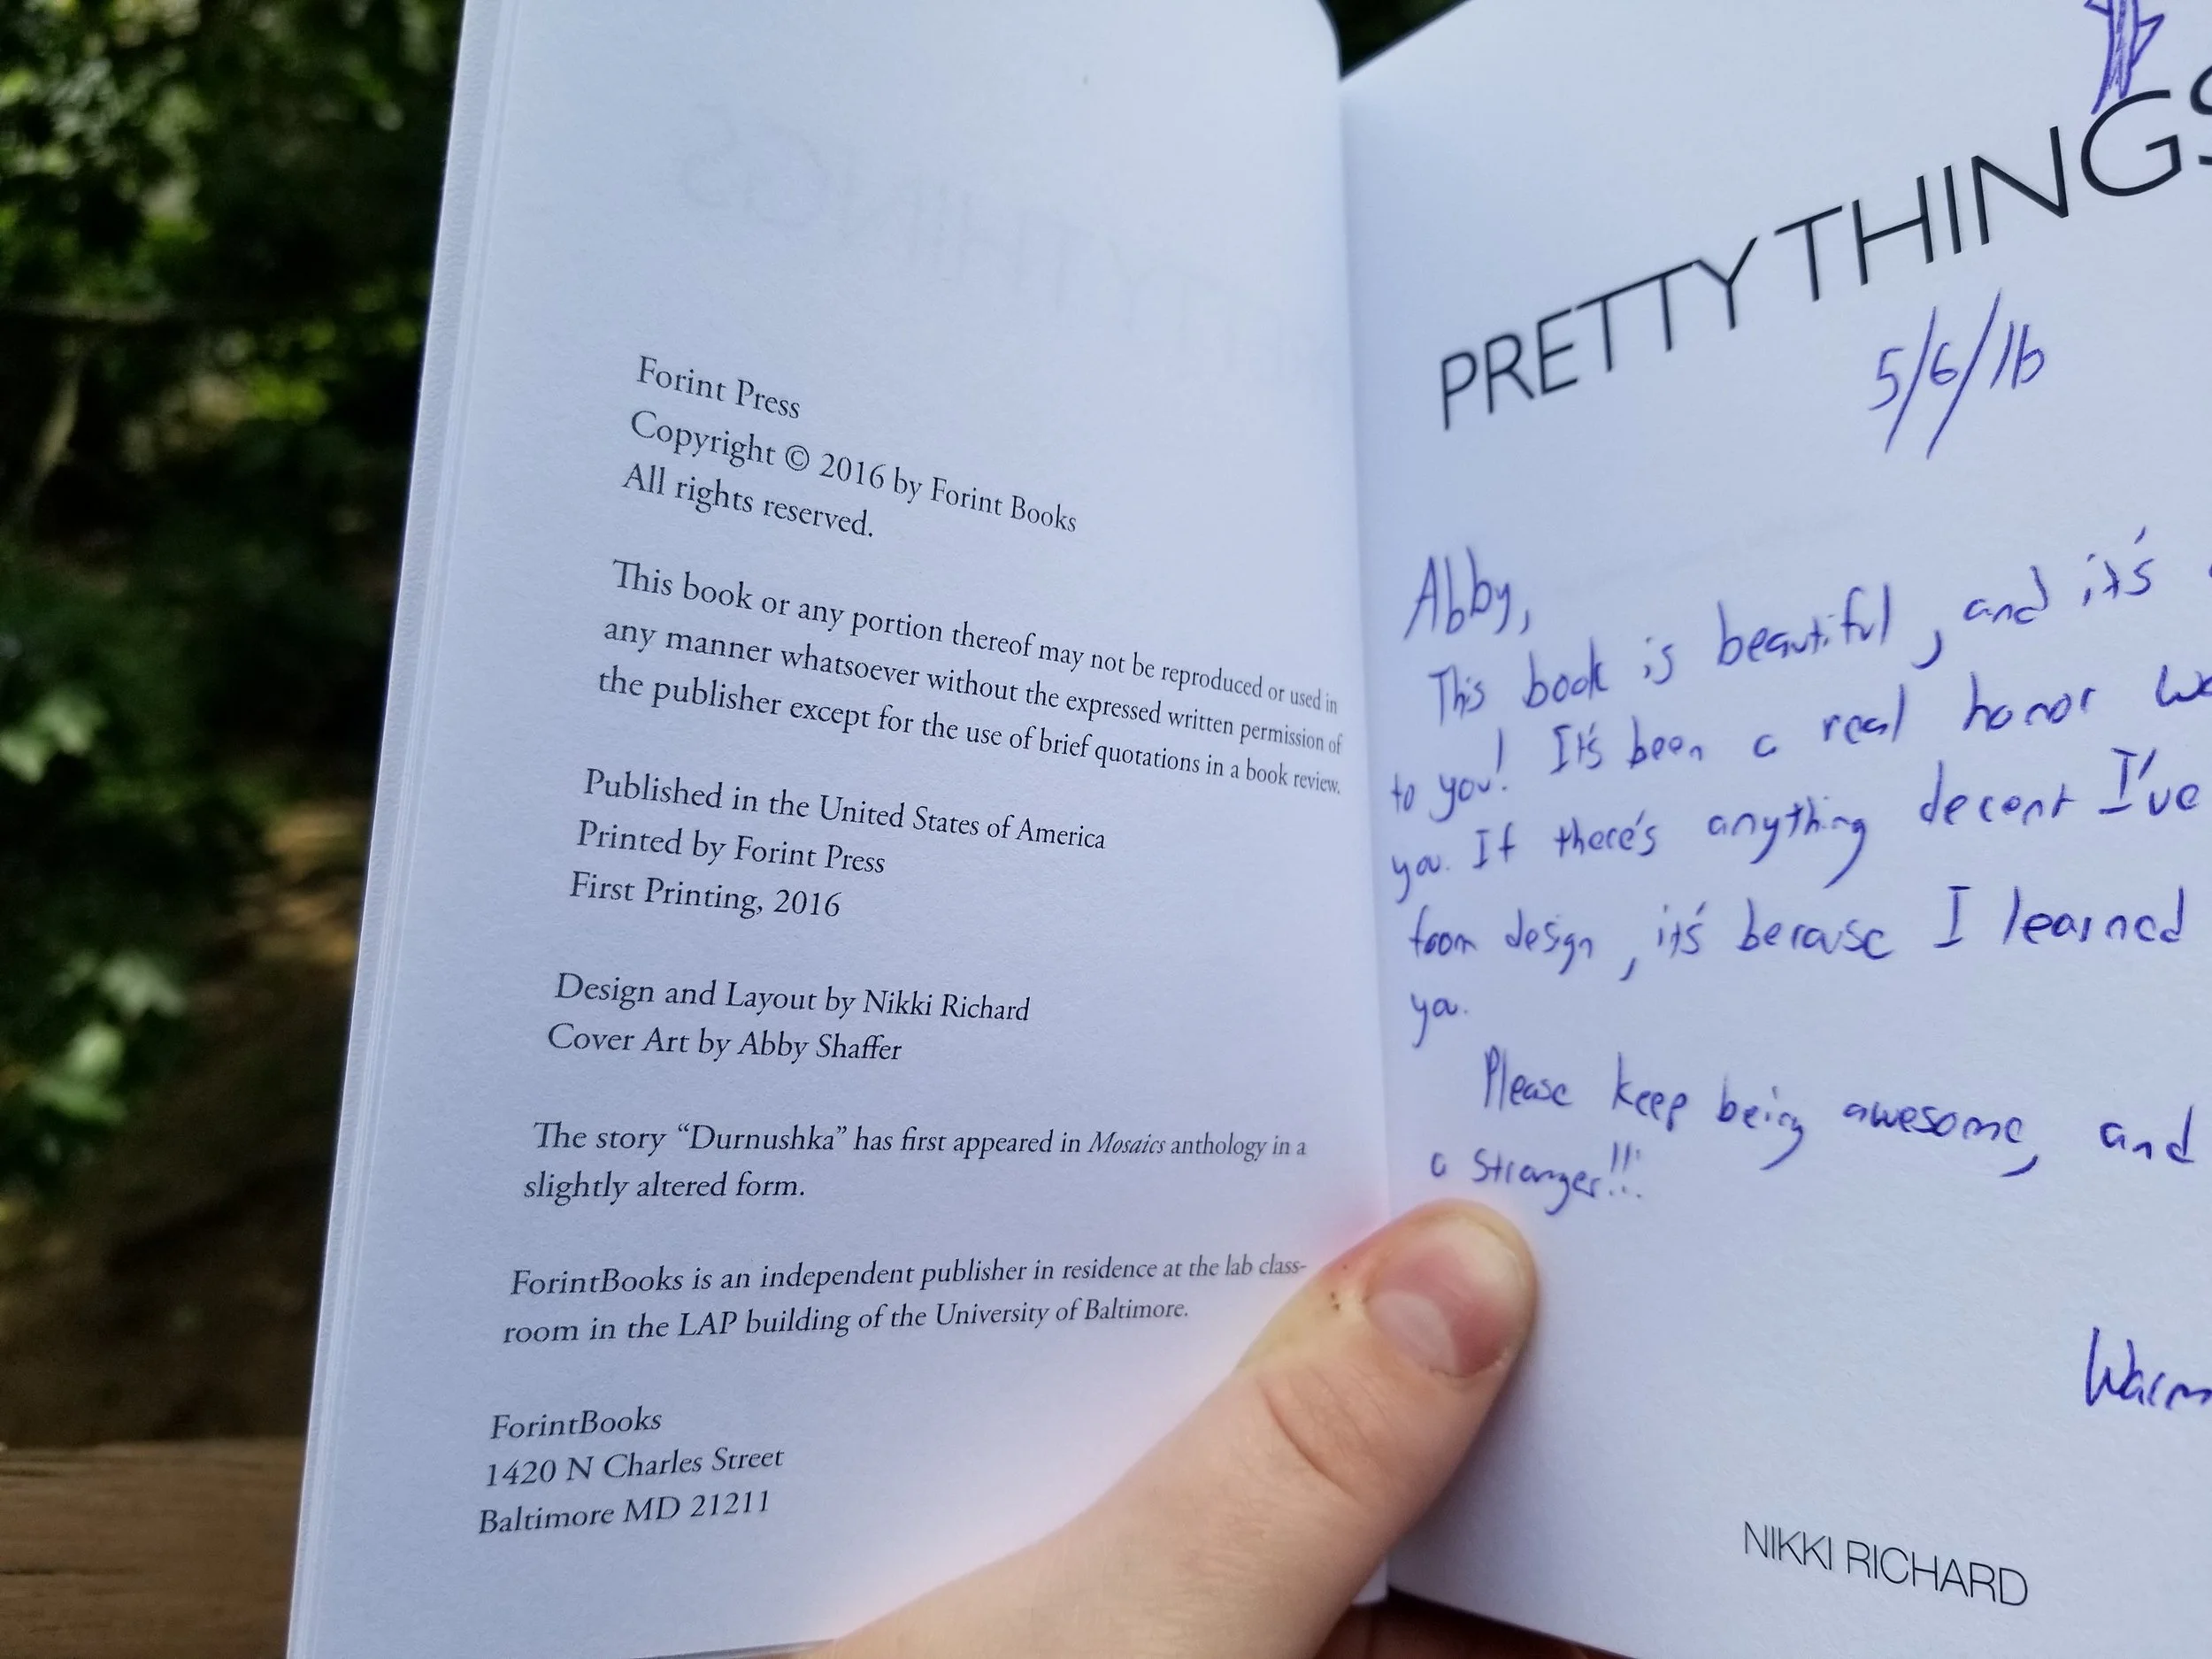 Forint Press
Copyright © 2016 by Forint Books
All rights reserved.
This book or any portion thereof may not be reproduced or used in
any manner whatsoever without the expressed written permission of
the publisher except for the use of brief quotations in a book review.
Published in the United States of America
Printed by Forint Press
First Printing, 2016
Design and Layout by Nikki Richard
Cover Art by Abby Shaffer
The story “Durnushka” has first appeared in Mosaics anthology in a
slightly altered form.
ForintBooks is an independent publisher in residence at the lab class-
room in the LAP building of the University of Baltimore.
ForintBooks
1420 N Charles Street
Baltimore MD 21211
PRETTY THINGS
5/6/16
Abby,
This book is beautiful, and it's
to you! It's been a real honor
you. If there's anything decent I've
from design, it's because I learned
ya.
Please keep being awesome, and
a stranger!!!
Warm
NIKKI RICHARD